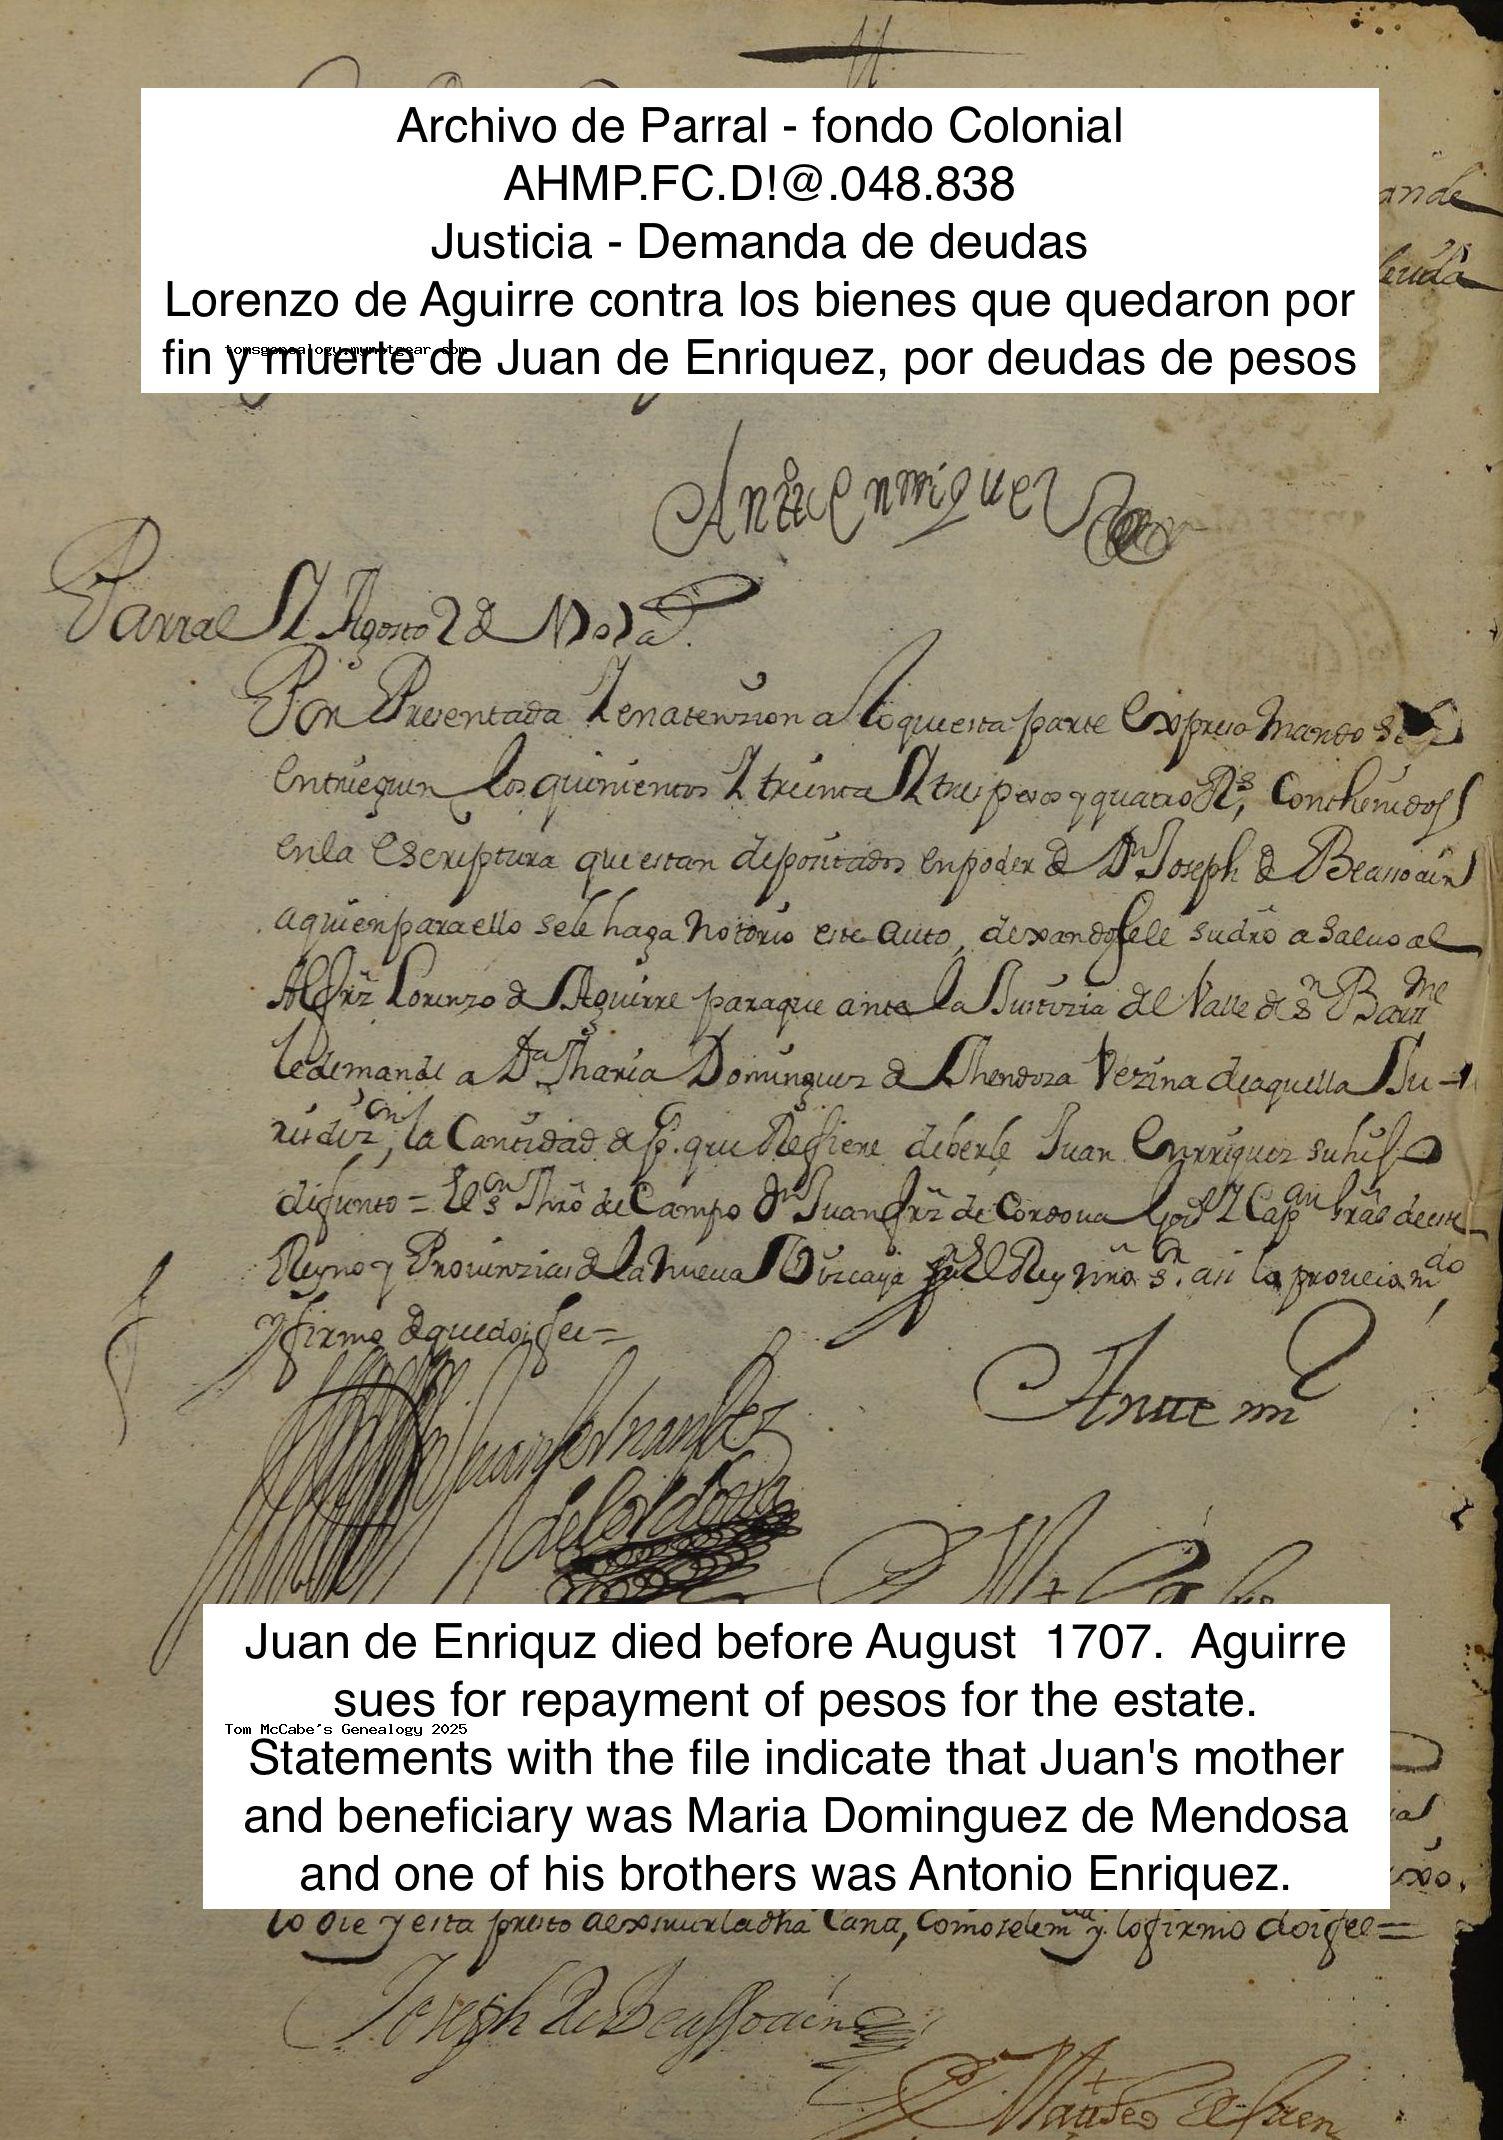 Archivo de Parral - fondo Colonial
AHMP.FC.D!@.048.838
Justicia - Demanda de deudas
Lorenzo de Aguirre contra los bienes que quedaron por
fin y muerte de Juan de Enriquez, por deudas de pesos
tomsgenealogy.mynetgear.com
Antt Enrriquez
Parral Y Agosto 2 de 1707 a
Por Presentada Y en atenzion a lo que esta parte Expresa mando se
Entrieguen los quinientos Y treinta Y tres pesos y quatro Rs, Conthenidos
en la Escriptura que estan depositados en poder de Dn Joseph de Beasoain
a quien para ello se le haga notorio este auto, dexandosele su dro a salvo al
Alfrz Lorenzo de Aguirre para que ante la Justizia del Valle de Sn Barme
le demande a Da Maria Dominguez de Mendoza Vezina de aquella Ju-
risdizon, la Cantidad de ps. que Refiere deberle Juan Enrriquez su hijo
difunto = El Sn Mro de Campo Dn Juan frz de Cordoua Govr Y Capan Gral de este
Reyno y Provinzias de la Nueva Vizcaya por el Rey nro Sr. asi lo proveio mdo
y firmo de que doi fee =
Juan fernandez
de Cordoba
Ante mi
Juan de Enriquz died before August 1707. Aguirre
sues for repayment of pesos for the estate.
Tom McCabe's Genealogy 2025
Statements with the file indicate that Juan's mother
and beneficiary was Maria Dominguez de Mendosa
and one of his brothers was Antonio Enriquez.
lo oie y esta presto de exsivir la dha Cana, Como se le mda y lo firmo doi fee =
Joseph de Beassoain